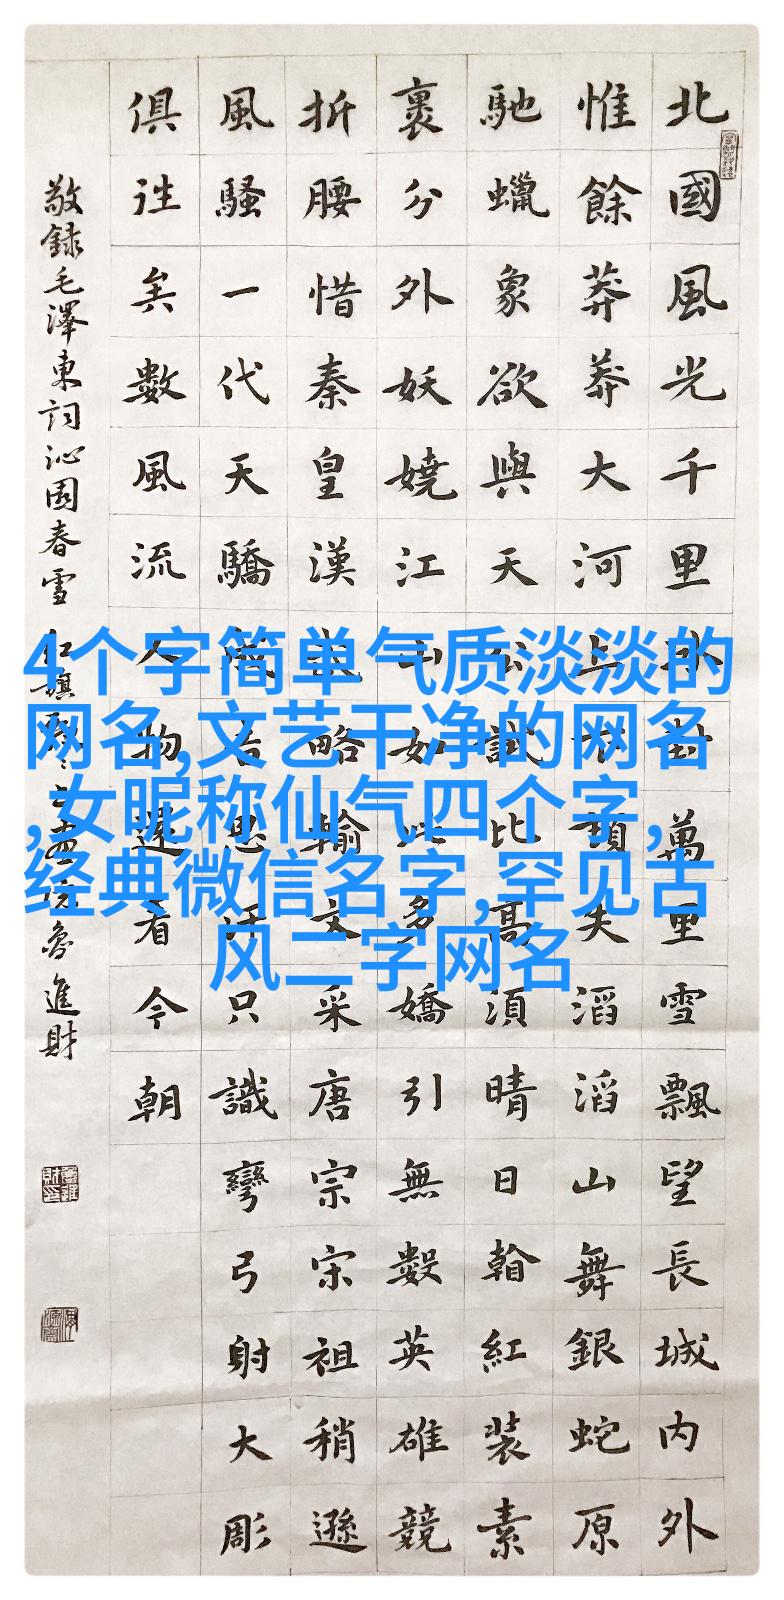 4个字简单气质淡淡的
网名,文艺干净的网名
,女昵称仙气四个字,
经典微信名字,罕见古
风二字网名
北國風光千里冰封萬里雪飄望長城内外
惟餘莽莽大河上下頓失滔滔山舞銀蛇原
馳蠟象欲與天公試比高須晴日翰紅裝素
裹分外妖嬈江山如此多嬌引無數英雄競
折腰惜秦皇漢武略輸文采唐宗宋祖稍遜
風騷一代天驕成吉思汗只識彎弓射大彫
俱往矣數風流人物還看今朝
敬録毛澤東詞沁園春雪 紅旗書院魯進財